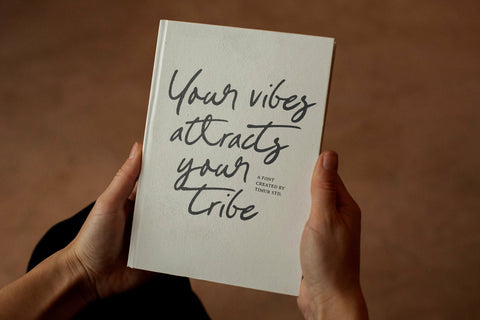 Your vibes
attracts
your
tribe
A FONT
CREATED BY
TIMUR STD.